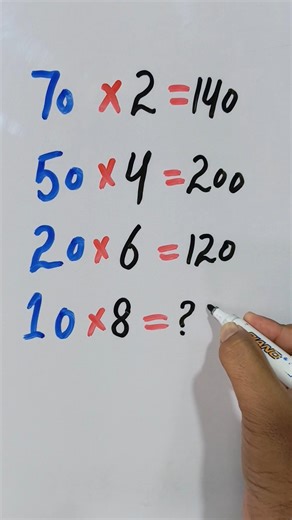 70 × 2 = 140
50 × 4 = 200
20 × 6 = 120
10 × 8 = ?